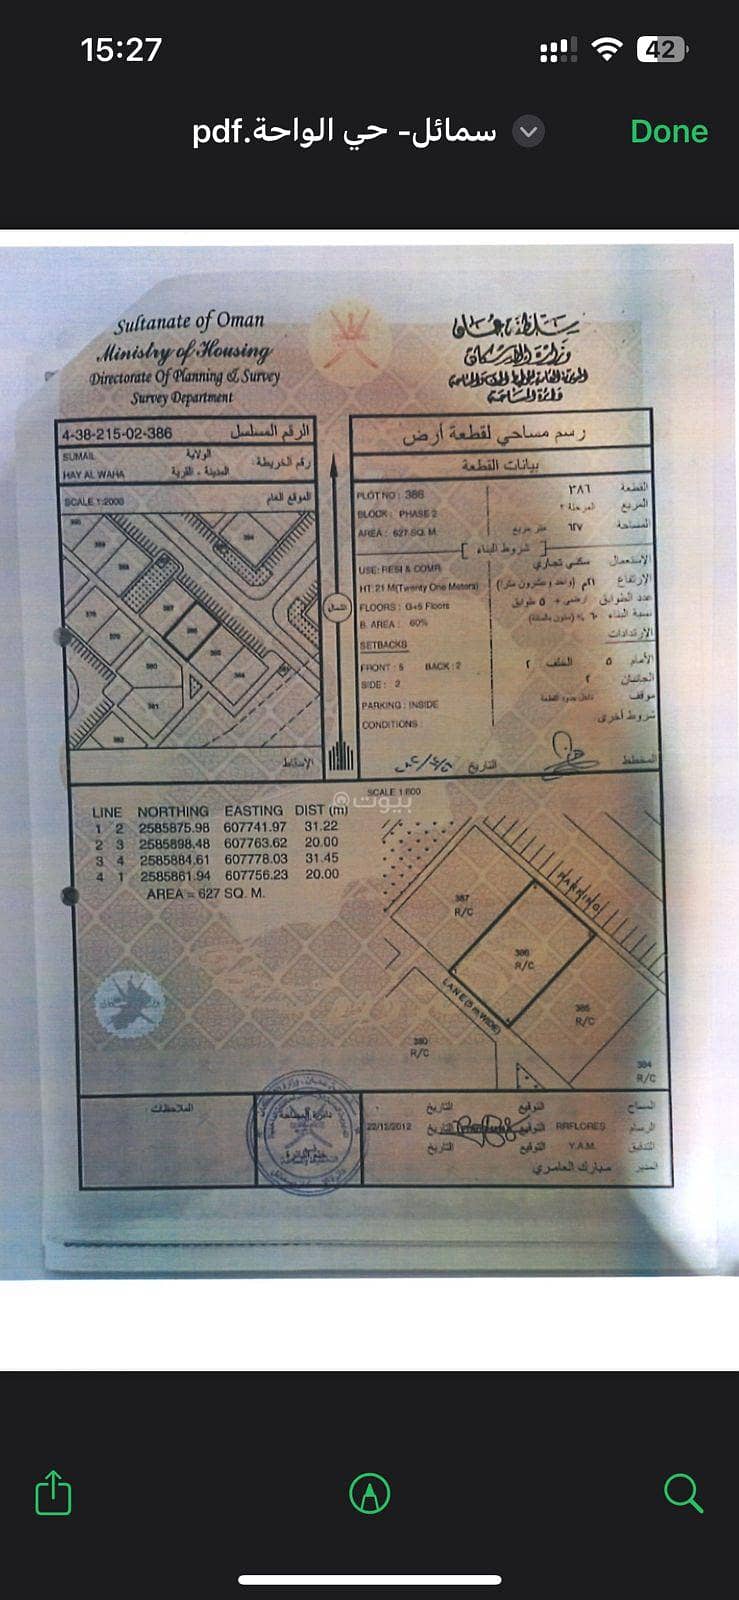 15:27
42
سمائل- حي الواحة.pdf
Done
Sultanate of Oman
Ministry of Housing
Directorate Of Planning & Survey
Survey Department
سلطنة عمان
وزارة الإسكان
دائرة المساحة
4-38-215-02-386
الرقم المسلسل
SUMAIL
الولاية
رقم الخريطة:
HAY AL WAHA
المدينة - القرية
SCALE 1:2000
الموقع العام
رسم مساحي لقطعة أرض
بيانات القطعة
PLOT NO: 386
٣٨٦
القطعة
BLOCK: PHASE 2
المرحلة ٢
المربع
AREA: 627 SQ. M.
٦٢٧ متر مربع
المساحة
شروط البناء
USE: RESI & COMR
سكني تجاري
الإستعمال
HT: 21 M(Twenty One Meters)
٢١م (واحد وعشرون مترا)
الإرتفاع
FLOORS: G+5 Floors
أرضي + ٥ طوابق
عدد الطوابق
B. AREA: 60%
٦٠% (ستون بالمائة)
نسبة البناء
SETBACKS
الإرتدادات
FRONT: 5 BACK: 2
الأمام ٥ الخلف ٢
SIDE: 2
الجانبان ٢
PARKING: INSIDE
موقف داخل حدود القطعة
CONDITIONS:
شروط أخرى
387
386
385
384
379
380
381
382
الشمال
الإسقاط
التاريخ
المخطط
SCALE 1:600
بيوت
LINE NORTHING EASTING DIST (m)
1 2 2585875.98 607741.97 31.22
2 3 2585898.48 607763.62 20.00
3 4 2585884.61 607778.03 31.45
4 1 2585861.94 607756.23 20.00
AREA = 627 SQ. M.
PARKING
387
R/C
386
R/C
LANE (5 m WIDE)
385
R/C
380
R/C
384
R/C
الملاحظات:
دائرة المساحة
التاريخ التوقيع المساح
22/12/2012 التاريخ التوقيع RRFLORES الرسام
التاريخ التوقيع Y.A.M. التدقيق
مبارك العامري المدير